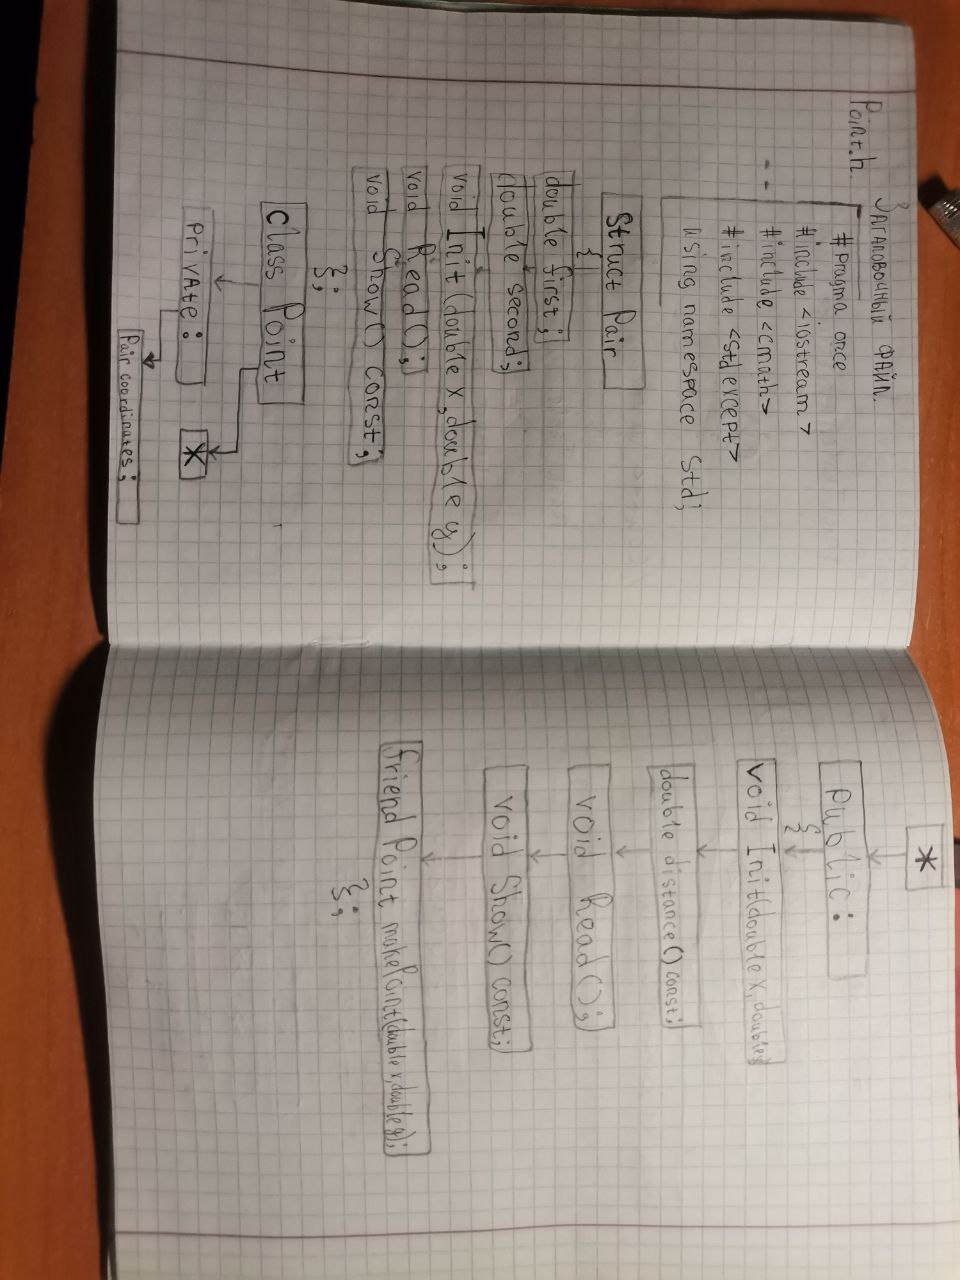 Point.h. Загаловочный файл.
#pragma once
#include <iostream>
#include <cmath>
#include <stdexcept>
using namespace std;
Struct Pair
{
double first;
double second;
void Init(double x, double y);
void Read();
void Show() const;
};
Class Point
private:
*
Pair coordinates;
*
public:
{
void Init(double x, double y)
double distance() const;
void Read();
void Show() const;
friend Point makePoint(double x, double y);
};